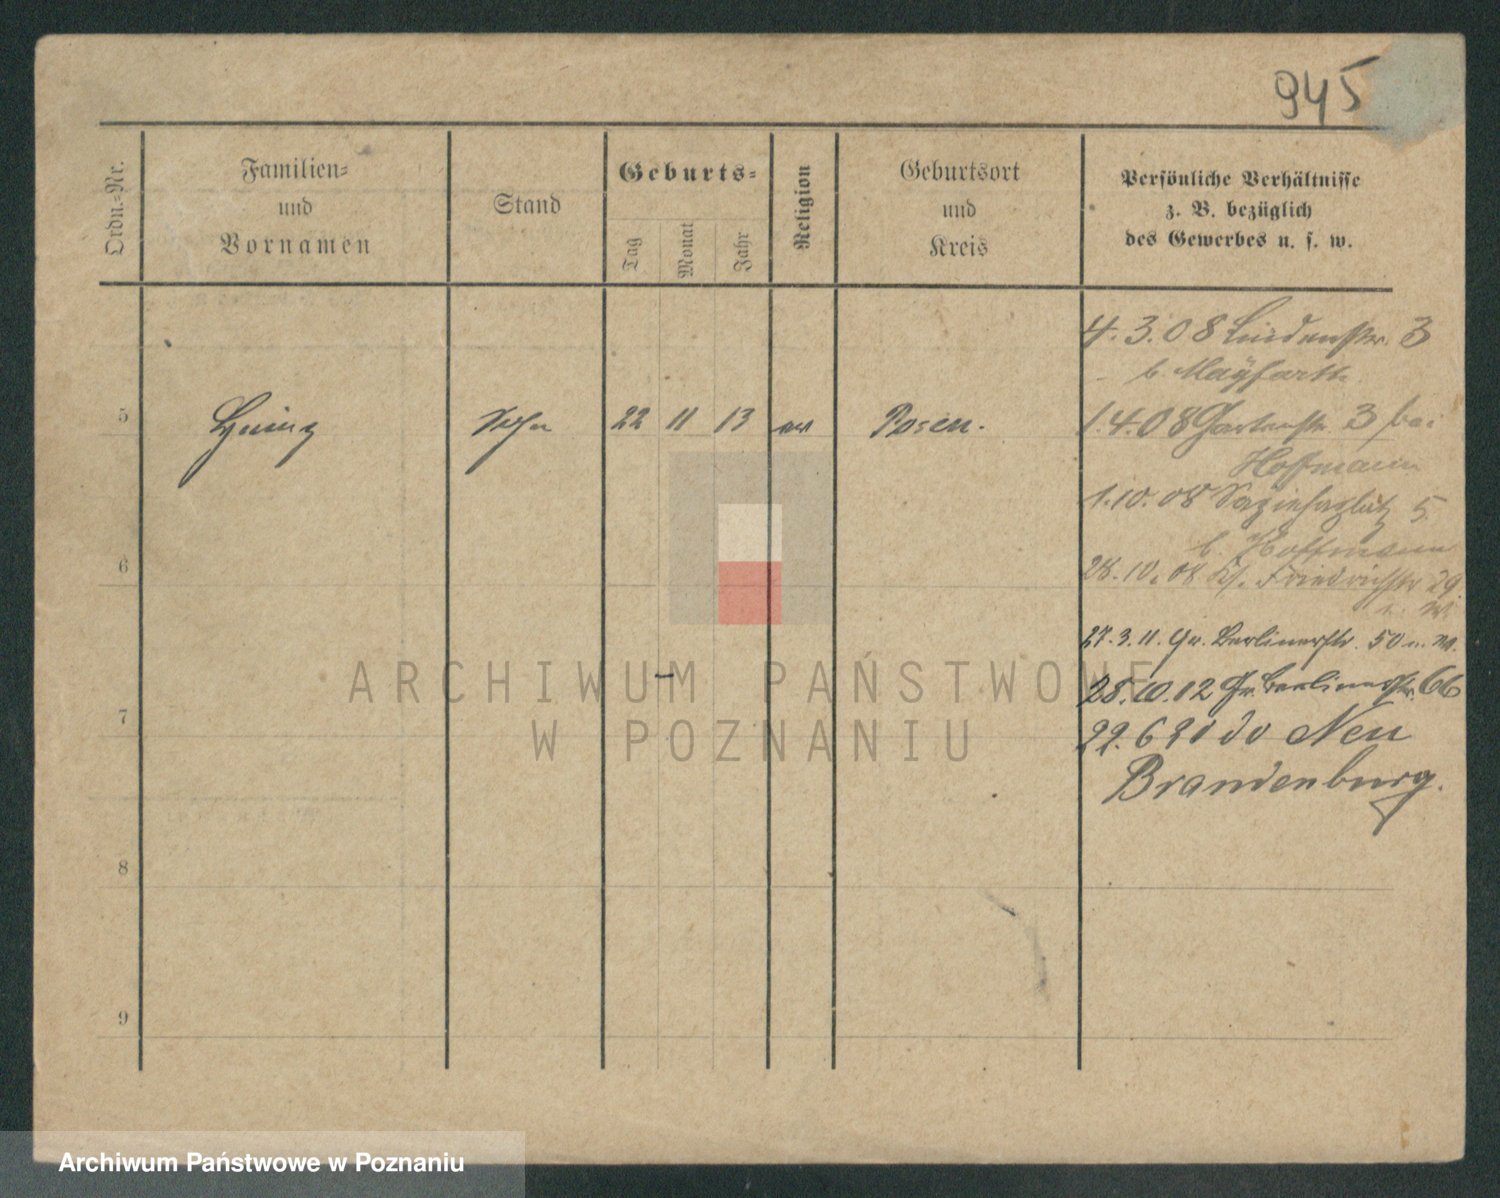 945
Ordn.-Nr.
Familien-
und
Vornamen
Stand
Geburts-
Tag
Monat
Jahr
Religion
Geburtsort
und
Kreis
Persönliche Verhältnisse
z. B. bezüglich
des Gewerbes u. s. w.
5
Heinz
Sohn
22 11 13
ev
Posen.
6
7
8
9
4.3.08 Lindenstr. 3
b. Mayfarth
1.4.08 Gartenstr. 3 bei
Hoffmann
1.10.08 Sapiehaplatz 5
b. Hoffmann
28.10.08 Kl. Friedrichstr 29
27.3.11. Gr. Berlinerstr. 50
28.10.12 Gr. Berlinerstr. 66
22.6 20 do Neu
Brandenburg.
ARCHIWUM PAŃSTWOWE
W POZNANIU
Archiwum Państwowe w Poznaniu